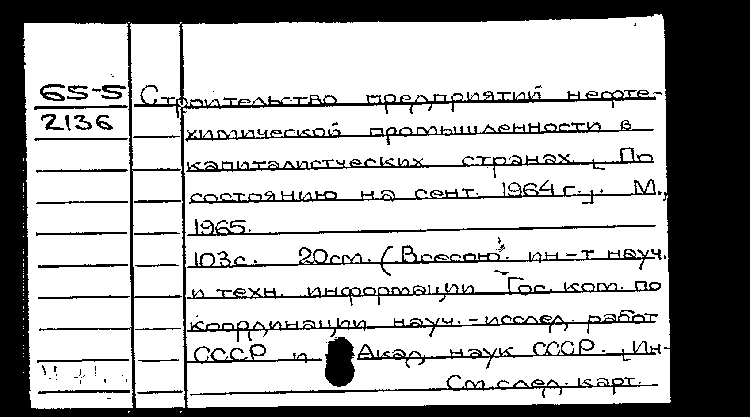 65-5 Строительство предприятий нефте-
2136 химической промышленности в
капиталистических странах. [По
состоянию на сент. 1964 г.]. М.,
1965.
103с. 20см. (Всесоюз. ин-т науч.
и техн. информации Гос. ком. по
координации науч.-исслед. работ
СССР и Акад. наук СССР. [Ин-
См.след. карт.